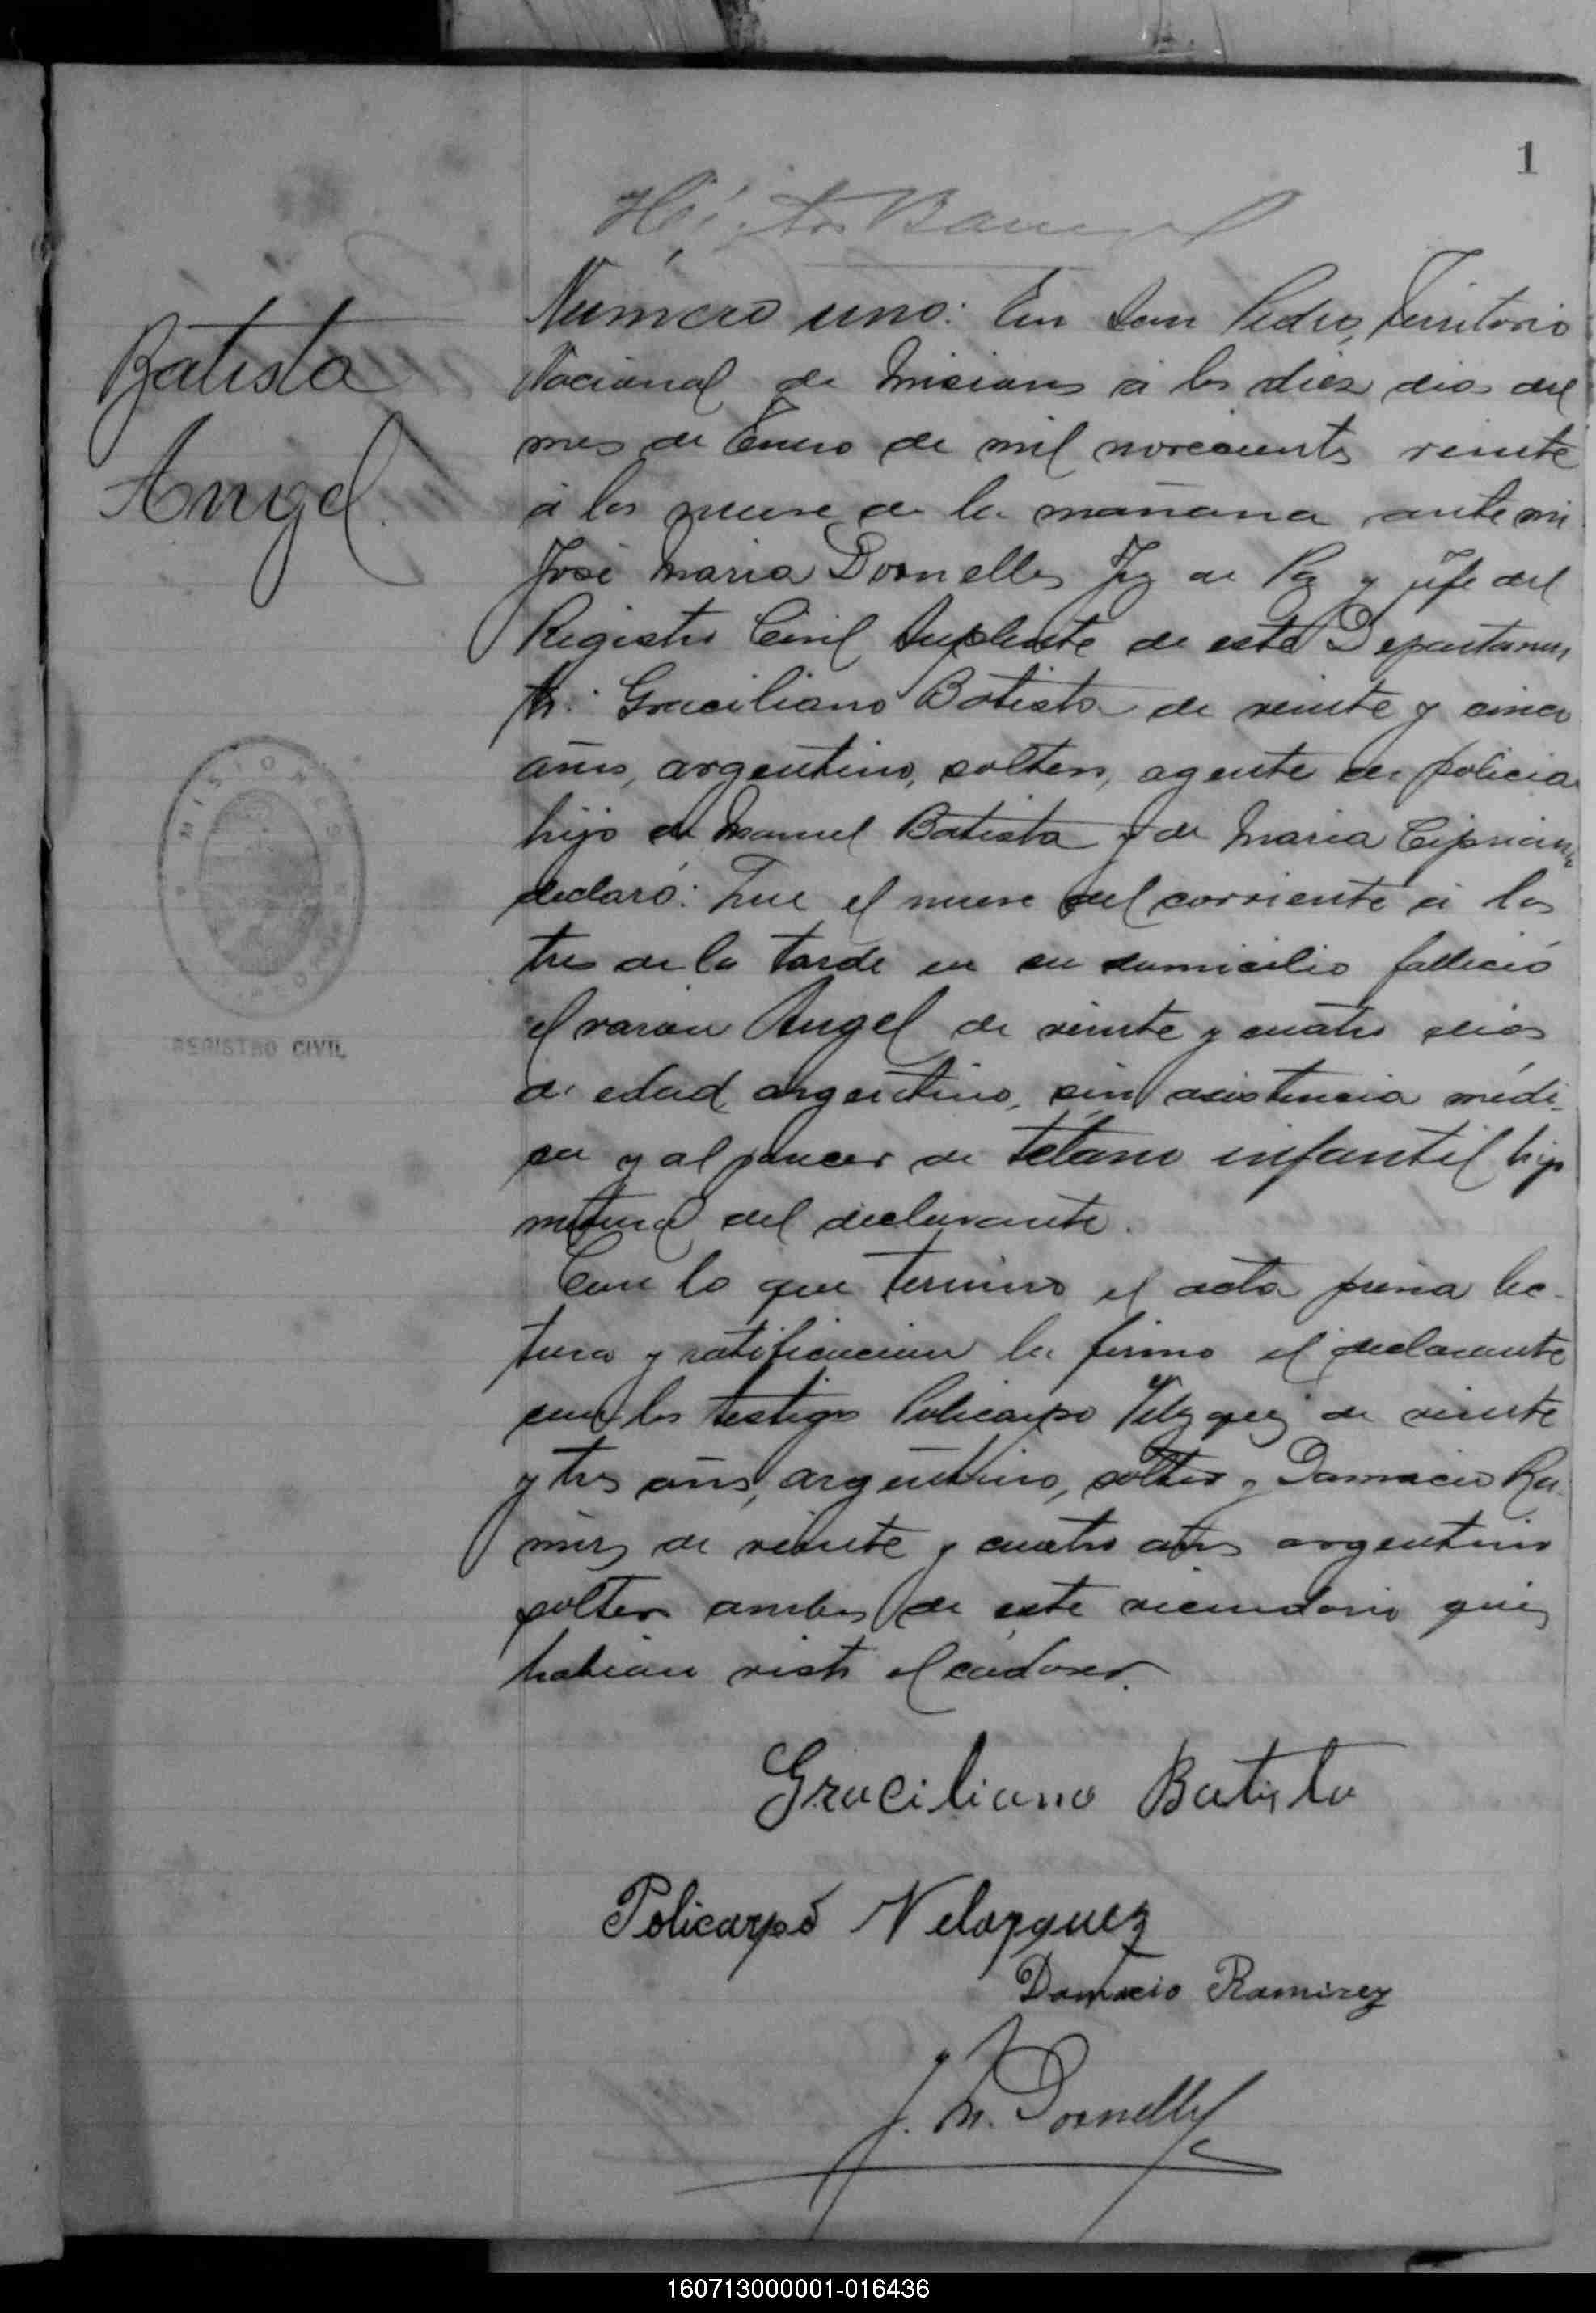 1
Batista
Angel.
Número uno: En San Pedro, Territorio
Nacional de Misiones á los diez dias del
mes de Enero de mil novecientos veinte
á las nueve de la mañana ante mi
José Maria Dornelles Juez de Paz y jefe del
Registro Civil Suplente de este Departamen
to: Graciliano Batista de veinte y cinco
años, argentino, soltero, agente de policia
hijo de Manuel Batista y de Maria Cipriana
declaró: Que el nueve del corriente á las
tres de la tarde en su domicilio falleció
el varon Angel de veinte y cuatro dias
de edad, argentino, sin asistencia médi-
ca y al parecer de tétano infantil hijo
natural del declarante.
Con lo que termino el acta previa lec-
tura y ratificacion la firmo el declarante
con los testigos Policarpo Velazquez de veinte
y tres años, argentino, soltero y Damacio Ra
mirez de veinte y cuatro años argentino
soltero ambos de este vecindario quienes
habian visto el cadaver.
Graciliano Batista
Policarpo Velazquez
Damacio Ramirez
J. M. Dornelles
MISIONES
REGISTRO CIVIL
160713000001-016436